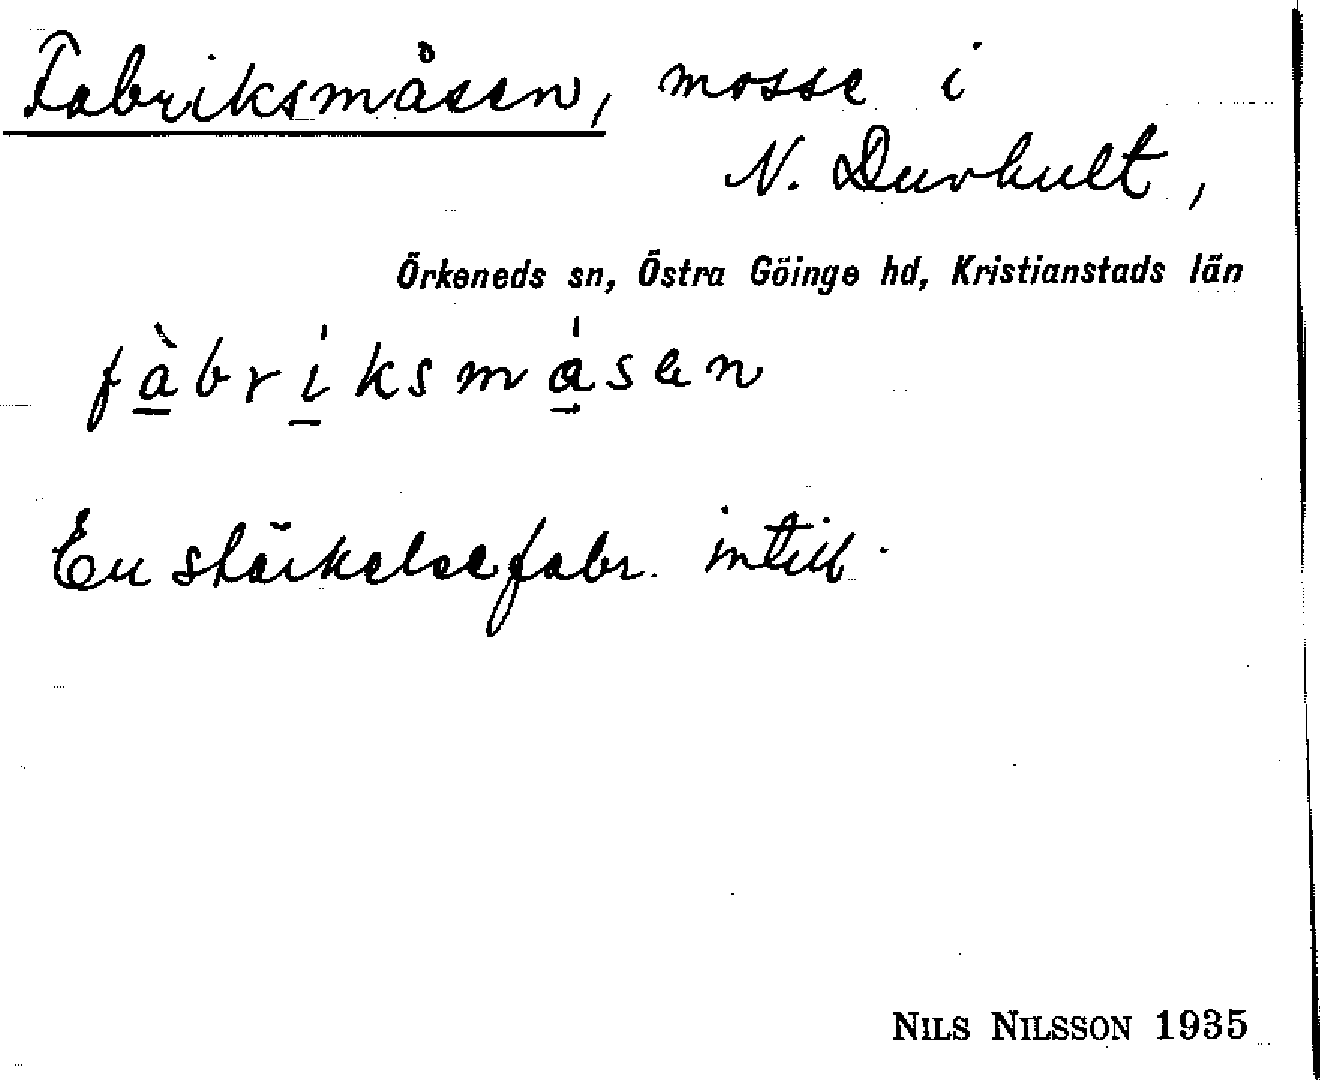 Fabriksmåsen, mosse i
N. Duvhult,
Örkeneds sn, Östra Göinge hd, Kristianstads län
fàbriksmåsen
En stärkelsefabr. intill.
NILS NILSSON 1935